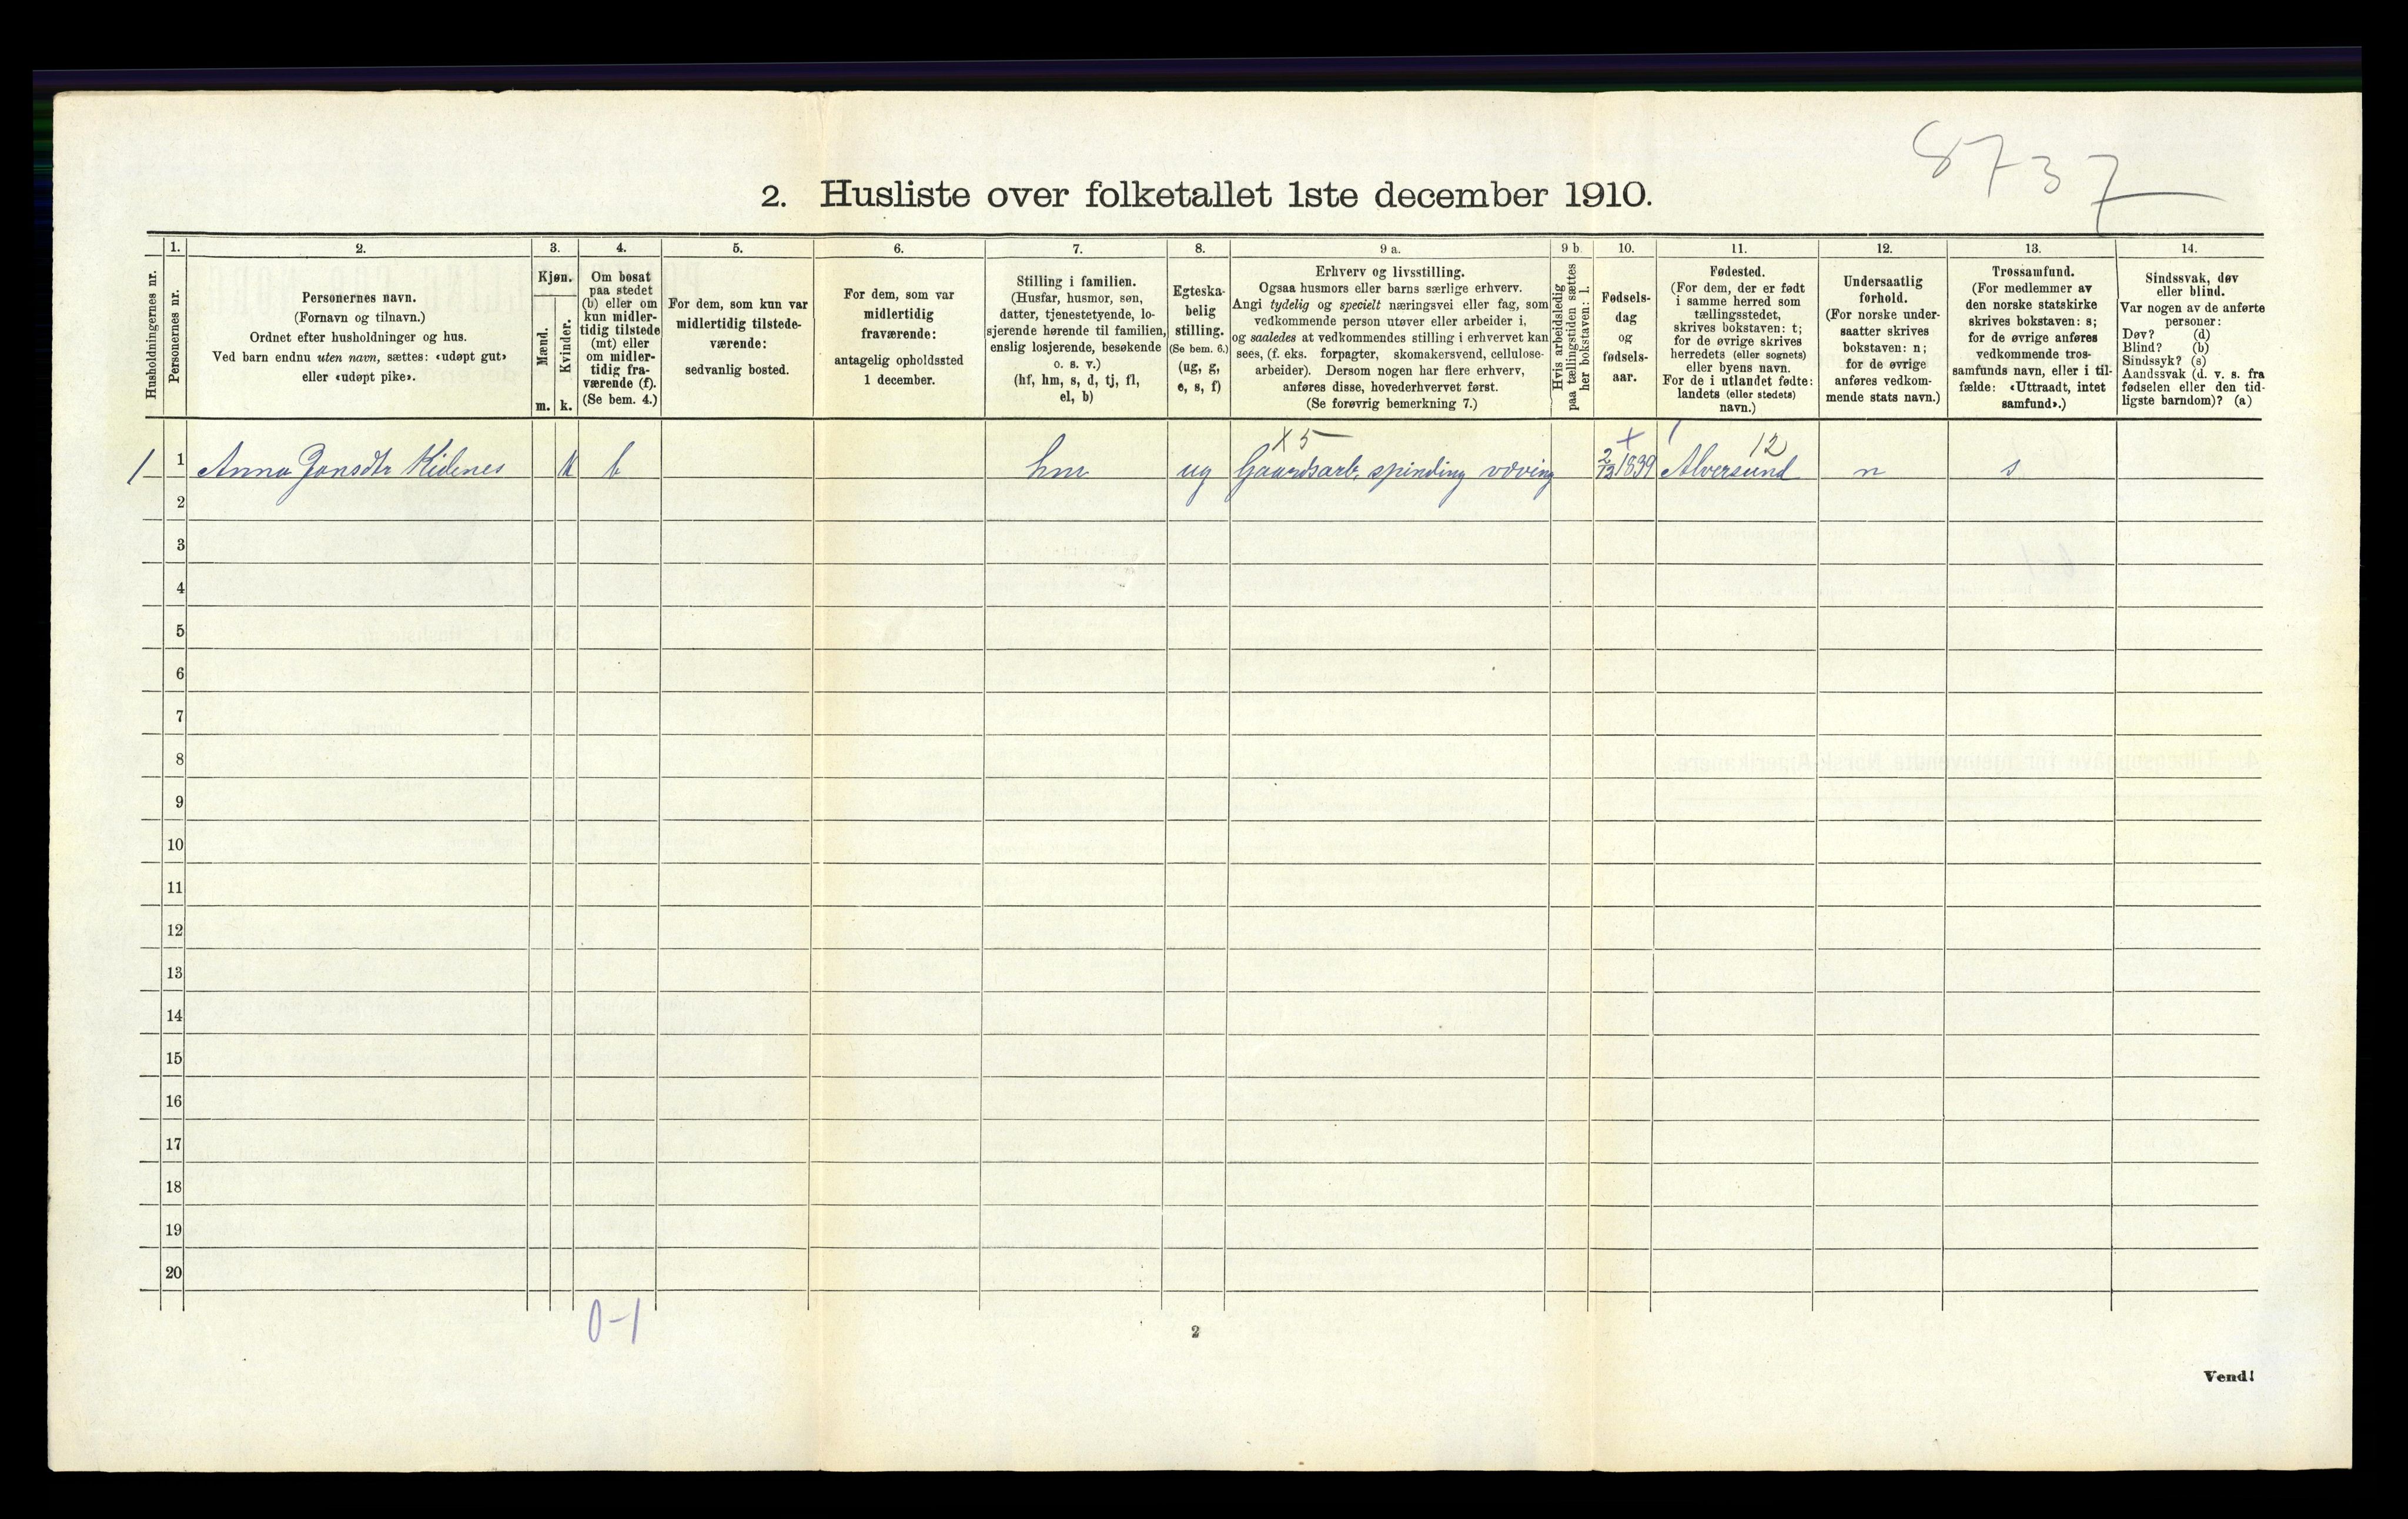 8737
2. Husliste over folketallet 1ste december 1910.
Husholdningernes nr.
1.
Personernes nr.
2.
Personernes navn.
(Fornavn og tilnavn.)
Ordnet efter husholdninger og hus.
Ved barn endnu uten navn, sættes: «udøpt gut»
eller «udøpt pike».
3.
Kjøn.
Mænd.
Kvinder.
m. k.
4.
Om bosat
paa stedet
(b) eller om
kun midler-
tidig tilstede
(mt) eller
om midler-
tidig fra-
værende (f).
(Se bem. 4.)
5.
For dem, som kun var
midlertidig tilstede-
værende:
sedvanlig bosted.
6.
For dem, som var
midlertidig
fraværende:
antagelig opholdssted
1 december.
7.
Stilling i familien.
(Husfar, husmor, søn,
datter, tjenestetyende, lo-
sjerende hørende til familien,
enslig losjerende, besøkende
o. s. v.)
(hf, hm, s, d, tj, fl,
el, b)
8.
Egteska-
belig
stilling.
(Se bem. 6.)
(ug, g,
e, s, f)
9 a.
Erhverv og livsstilling.
Ogsaa husmors eller barns særlige erhverv.
Angi tydelig og specielt næringsvei eller fag, som
vedkommende person utøver eller arbeider i,
og saaledes at vedkommendes stilling i erhvervet kan
sees, (f. eks. forpagter, skomakersvend, cellulose-
arbeider). Dersom nogen har flere erhverv,
anføres disse, hovederhvervet først.
(Se forøvrig bemerkning 7.)
9 b.
Hvis arbeidsledig
paa tællingstiden sættes
her bokstaven: l.
10.
Fødsels-
dag
og
fødsels-
aar.
11.
Fødested.
(For dem, der er født
i samme herred som
tællingsstedet,
skrives bokstaven: t;
for de øvrige skrives
herredets (eller sognets)
eller byens navn.
For de i utlandet fødte:
landets (eller stedets)
navn.)
12.
Undersaatlig
forhold.
(For norske under-
saatter skrives
bokstaven: n;
for de øvrige
anføres vedkom-
mende stats navn.)
13.
Trossamfund.
(For medlemmer av
den norske statskirke
skrives bokstaven: s;
for de øvrige anføres
vedkommende tros-
samfunds navn, eller i til-
fælde: «Uttraadt, intet
samfund».)
14.
Sindssvak, døv
eller blind.
Var nogen av de anførte
personer:
Døv? (d)
Blind? (b)
Sindssyk? (s)
Aandssvak (d. v. s. fra
fødselen eller den tid-
ligste barndom)? (a)
X 5 + 12
1 1 Anna Jonsdtr Kidenes k b hm ug Gaardsarb, spinding væving 2/12 1839 Alversund n s
2
3
4
5
6
7
8
9
10
11
12
13
14
15
16
17
18
19
20
0-1
2
Vend!